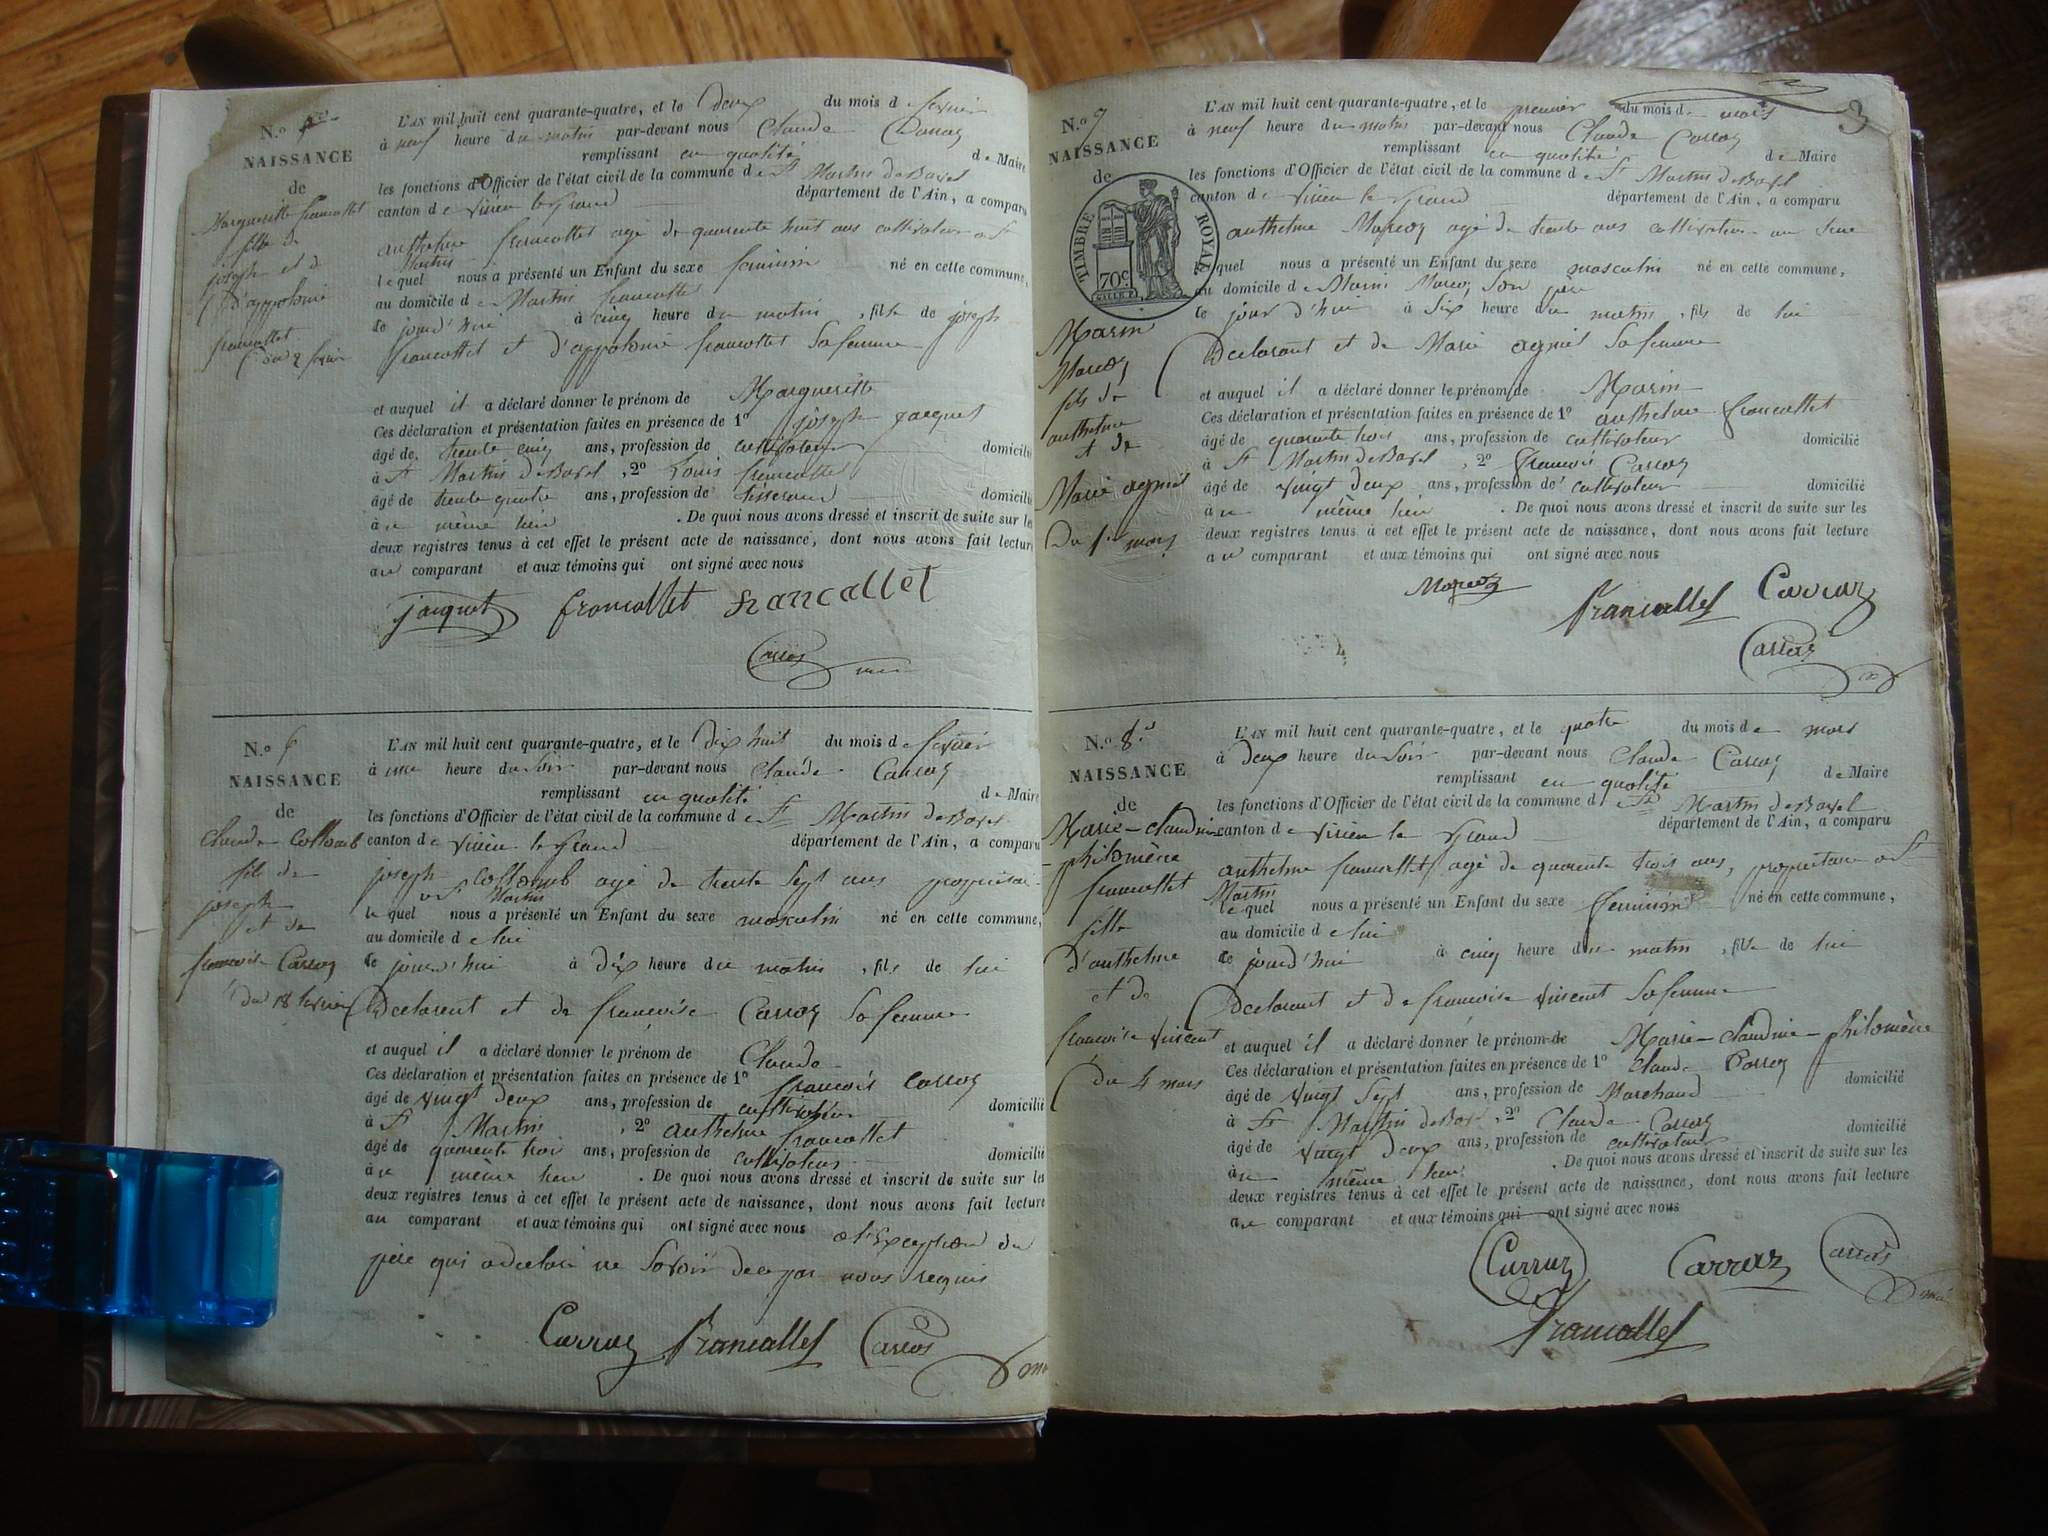 N.º 5
NAISSANCE
de
Marguerite francollet
fille de
joseph et
d'appolonie
francollet
du 2 fevrier
L'AN mil huit cent quarante-quatre, et le deux du mois de fevrier
à neuf heure du matin par-devant nous Claude Carroz
remplissant en qualité de Maire
les fonctions d'Officier de l'état civil de la commune de St Martin de Bavel
canton de virieu le Grand département de l'Ain, a comparu
anthelme francollet agé de quarante huit ans cultivateur a St
Martin
lequel nous a présenté un Enfant du sexe feminin né en cette commune,
au domicile de Martin francollet
ce jourd'hui à cinq heure du matin, fille de joseph
francollet et d'appolonie francollet sa femme
et auquel il a déclaré donner le prénom de Marguerite
Ces déclaration et présentation faites en présence de 1º joseph jacquet
âgé de trente cinq ans, profession de cultivateur domicilié
à St Martin de Bavel, 2º Louis francollet
âgé de trente quatre ans, profession de tisserand domicilié
à ce même lieu. De quoi nous avons dressé et inscrit de suite sur les
deux registres tenus à cet effet le présent acte de naissance, dont nous avons fait lecture
au comparant et aux témoins qui ont signé avec nous
jacquet francollet francallet
Carroz
N.º 6
NAISSANCE
de
Claude Collomb
fils de
joseph
et de
francoise Carroz
du 18 fevrier
L'AN mil huit cent quarante-quatre, et le dix huit du mois de fevrier
à une heure du soir par-devant nous Claude Carroz
remplissant en qualité de Maire
les fonctions d'Officier de l'état civil de la commune de St Martin de Bavel
canton de virieu le Grand département de l'Ain, a comparu
joseph Collomb agé de trente sept ans proprietaire
a St Martin
lequel nous a présenté un Enfant du sexe masculin né en cette commune,
au domicile de lui
ce jourd'hui à dix heure du matin, fils de lui
Declarant et de francoise Carroz sa femme
et auquel il a déclaré donner le prénom de Claude
Ces déclaration et présentation faites en présence de 1º francois Carroz
âgé de vingt deux ans, profession de cultivateur domicilié
à St Martin, 2º anthelme francollet
âgé de quarante trois ans, profession de cultivateur domicilié
à ce même lieu. De quoi nous avons dressé et inscrit de suite sur les
deux registres tenus à cet effet le présent acte de naissance, dont nous avons fait lecture
au comparant et aux témoins qui ont signé avec nous a l'exception du
père qui a declaré ne savoir de ce par nous requis
Carraz Francallet Carroz
3
N.º 7
NAISSANCE
de
TIMBRE ROYAL
70 c.
Marin
Marcoz
fils de
anthelme
et de
Marie agniel
Du 1er mars
L'AN mil huit cent quarante-quatre, et le premier du mois de mars
à neuf heure du matin par-devant nous Claude Carroz
remplissant en qualité de Maire
les fonctions d'Officier de l'état civil de la commune de St Martin de Bavel
canton de virieu le Grand département de l'Ain, a comparu
anthelme Marcoz agé de trente ans cultivateur
lequel nous a présenté un Enfant du sexe masculin né en cette commune,
au domicile de Marin Marcoz son père
ce jour d'hui à six heure du matin, fils de lui
Declarant et de Marie agniel sa femme
et auquel il a déclaré donner le prénom de Marin
Ces déclaration et présentation faites en présence de 1º anthelme francollet
âgé de quarante trois ans, profession de cultivateur domicilié
à St Martin de Bavel, 2º francois Carroz
âgé de vingt deux ans, profession de cultivateur domicilié
à ce même lieu. De quoi nous avons dressé et inscrit de suite sur les
deux registres tenus à cet effet le présent acte de naissance, dont nous avons fait lecture
au comparant et aux témoins qui ont signé avec nous
Marcoz Francallet Carraz
Carroz
N.º 8
NAISSANCE
de
Marie-claudine
philomène
francollet
fille
d'anthelme
et de
francoise vincent
du 4 mars
L'AN mil huit cent quarante-quatre, et le quatre du mois de mars
à deux heure du soir par-devant nous Claude Carroz
remplissant en qualité de Maire
les fonctions d'Officier de l'état civil de la commune de St Martin de Bavel
canton de virieu le Grand département de l'Ain, a comparu
anthelme francollet agé de quarante trois ans, proprietaire a St
Martin
lequel nous a présenté un Enfant du sexe feminin né en cette commune,
au domicile de lui
ce jourd'hui à cinq heure du matin, fille de lui
Declarant et de francoise vincent sa femme
et auquel il a déclaré donner le prénom de Marie-claudine-philomène
Ces déclaration et présentation faites en présence de 1º Claude Carroz
âgé de vingt sept ans, profession de Marchand domicilié
à St Martin de Bavel, 2º Claude Carroz
âgé de vingt deux ans, profession de cultivateur domicilié
à ce même lieu. De quoi nous avons dressé et inscrit de suite sur les
deux registres tenus à cet effet le présent acte de naissance, dont nous avons fait lecture
au comparant et aux témoins qui ont signé avec nous
Carraz Carraz Carroz
Francallet